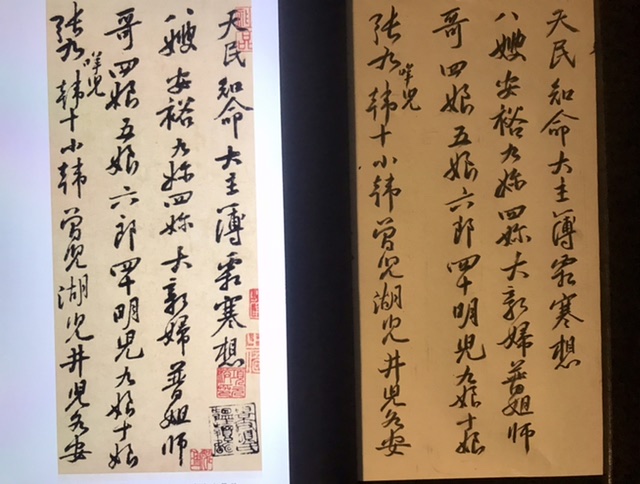 天民知命大主簿霜寒想
八嫂安裕九妳四妳大新婦普姐師
哥四娘五娘六郎四十明兒九娘十娘
張九咩兒韓十小韓曾兒湖兒井兒各安
天民知命大主簿霜寒想
八嫂安裕九妳四妳大新婦普姐師
哥四娘五娘六郎四十明兒九娘十娘
張九咩兒韓十小韓曾兒湖兒井兒各安